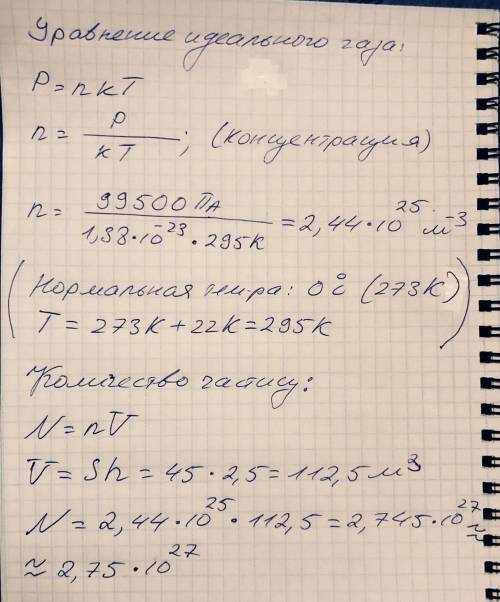 Уравнение идеального газа:
P = nkT
n = P / kT ; (концентрация)
n = 99500 Па / 1,38·10⁻²³ · 295К = 2,44·10²⁵ м⁻³
(Нормальная темпра: 0°C (273К)
T = 273К + 22К = 295К)
Количество частиц:
N = nV
V = Sh = 45 · 2,5 = 112,5 м³
N = 2,44·10²⁵ · 112,5 = 2,745·10²⁷ ≈
≈ 2,75·10²⁷